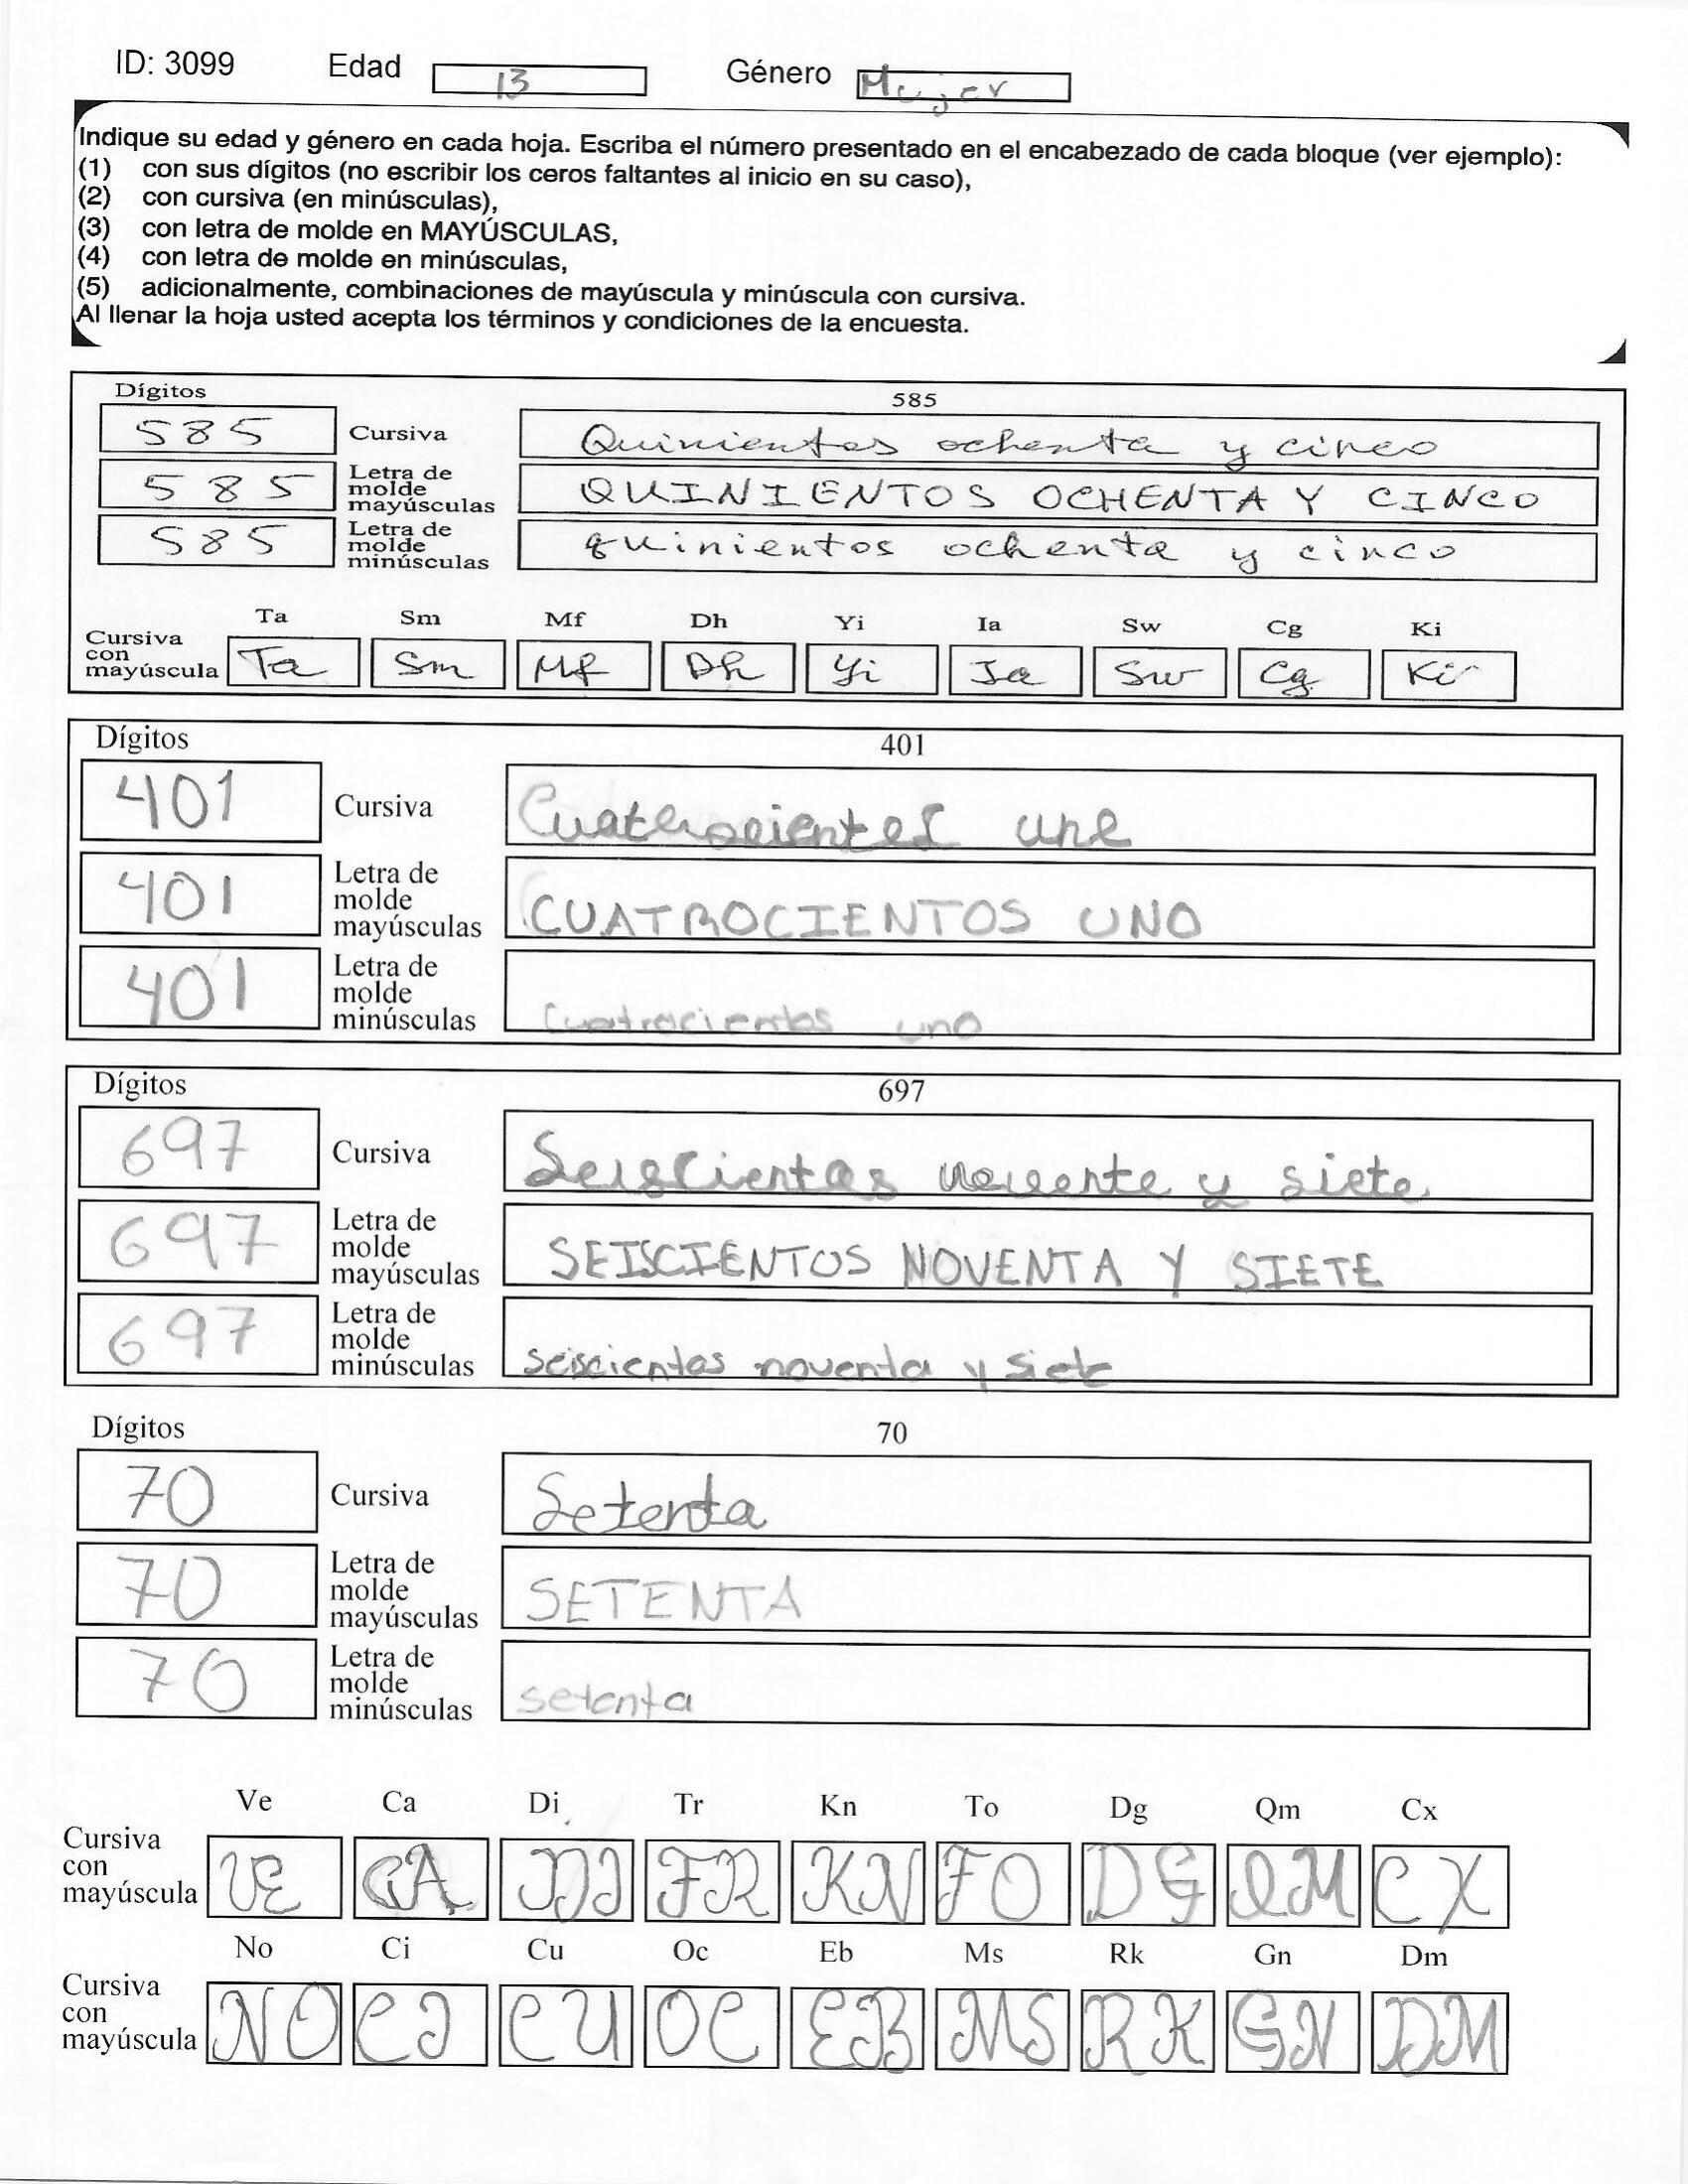 ID: 3099 Edad 13 Género Mujer
Indique su edad y género en cada hoja. Escriba el número presentado en el encabezado de cada bloque (ver ejemplo):
(1) con sus dígitos (no escribir los ceros faltantes al inicio en su caso),
(2) con cursiva (en minúsculas),
(3) con letra de molde en MAYÚSCULAS,
(4) con letra de molde en minúsculas,
(5) adicionalmente, combinaciones de mayúscula y minúscula con cursiva.
Al llenar la hoja usted acepta los términos y condiciones de la encuesta.
Dígitos 585
585 Cursiva Quinientos ochenta y cinco
585 Letra de molde mayúsculas QUINIENTOS OCHENTA Y CINCO
585 Letra de molde minúsculas quinientos ochenta y cinco
Ta Sm Mf Dh Yi Ia Sw Cg Ki
Cursiva con mayúscula Ta Sm Mf Dh Yi Ia Sw Cg Ki
Dígitos 401
401 Cursiva Cuatrocientos uno
401 Letra de molde mayúsculas CUATROCIENTOS UNO
401 Letra de molde minúsculas Cuatrocientos uno
Dígitos 697
697 Cursiva Seiscientos noventa y siete
697 Letra de molde mayúsculas SEISCIENTOS NOVENTA Y SIETE
697 Letra de molde minúsculas seiscientos noventa y siete
Dígitos 70
70 Cursiva Setenta
70 Letra de molde mayúsculas SETENTA
70 Letra de molde minúsculas setenta
Ve Ca Di Tr Kn To Dg Qm Cx
Cursiva con mayúscula VE CA DI TR KN TO DG QM CX
No Ci Cu Oc Eb Ms Rk Gn Dm
Cursiva con mayúscula NO CI CU OC EB MS RK GN DM